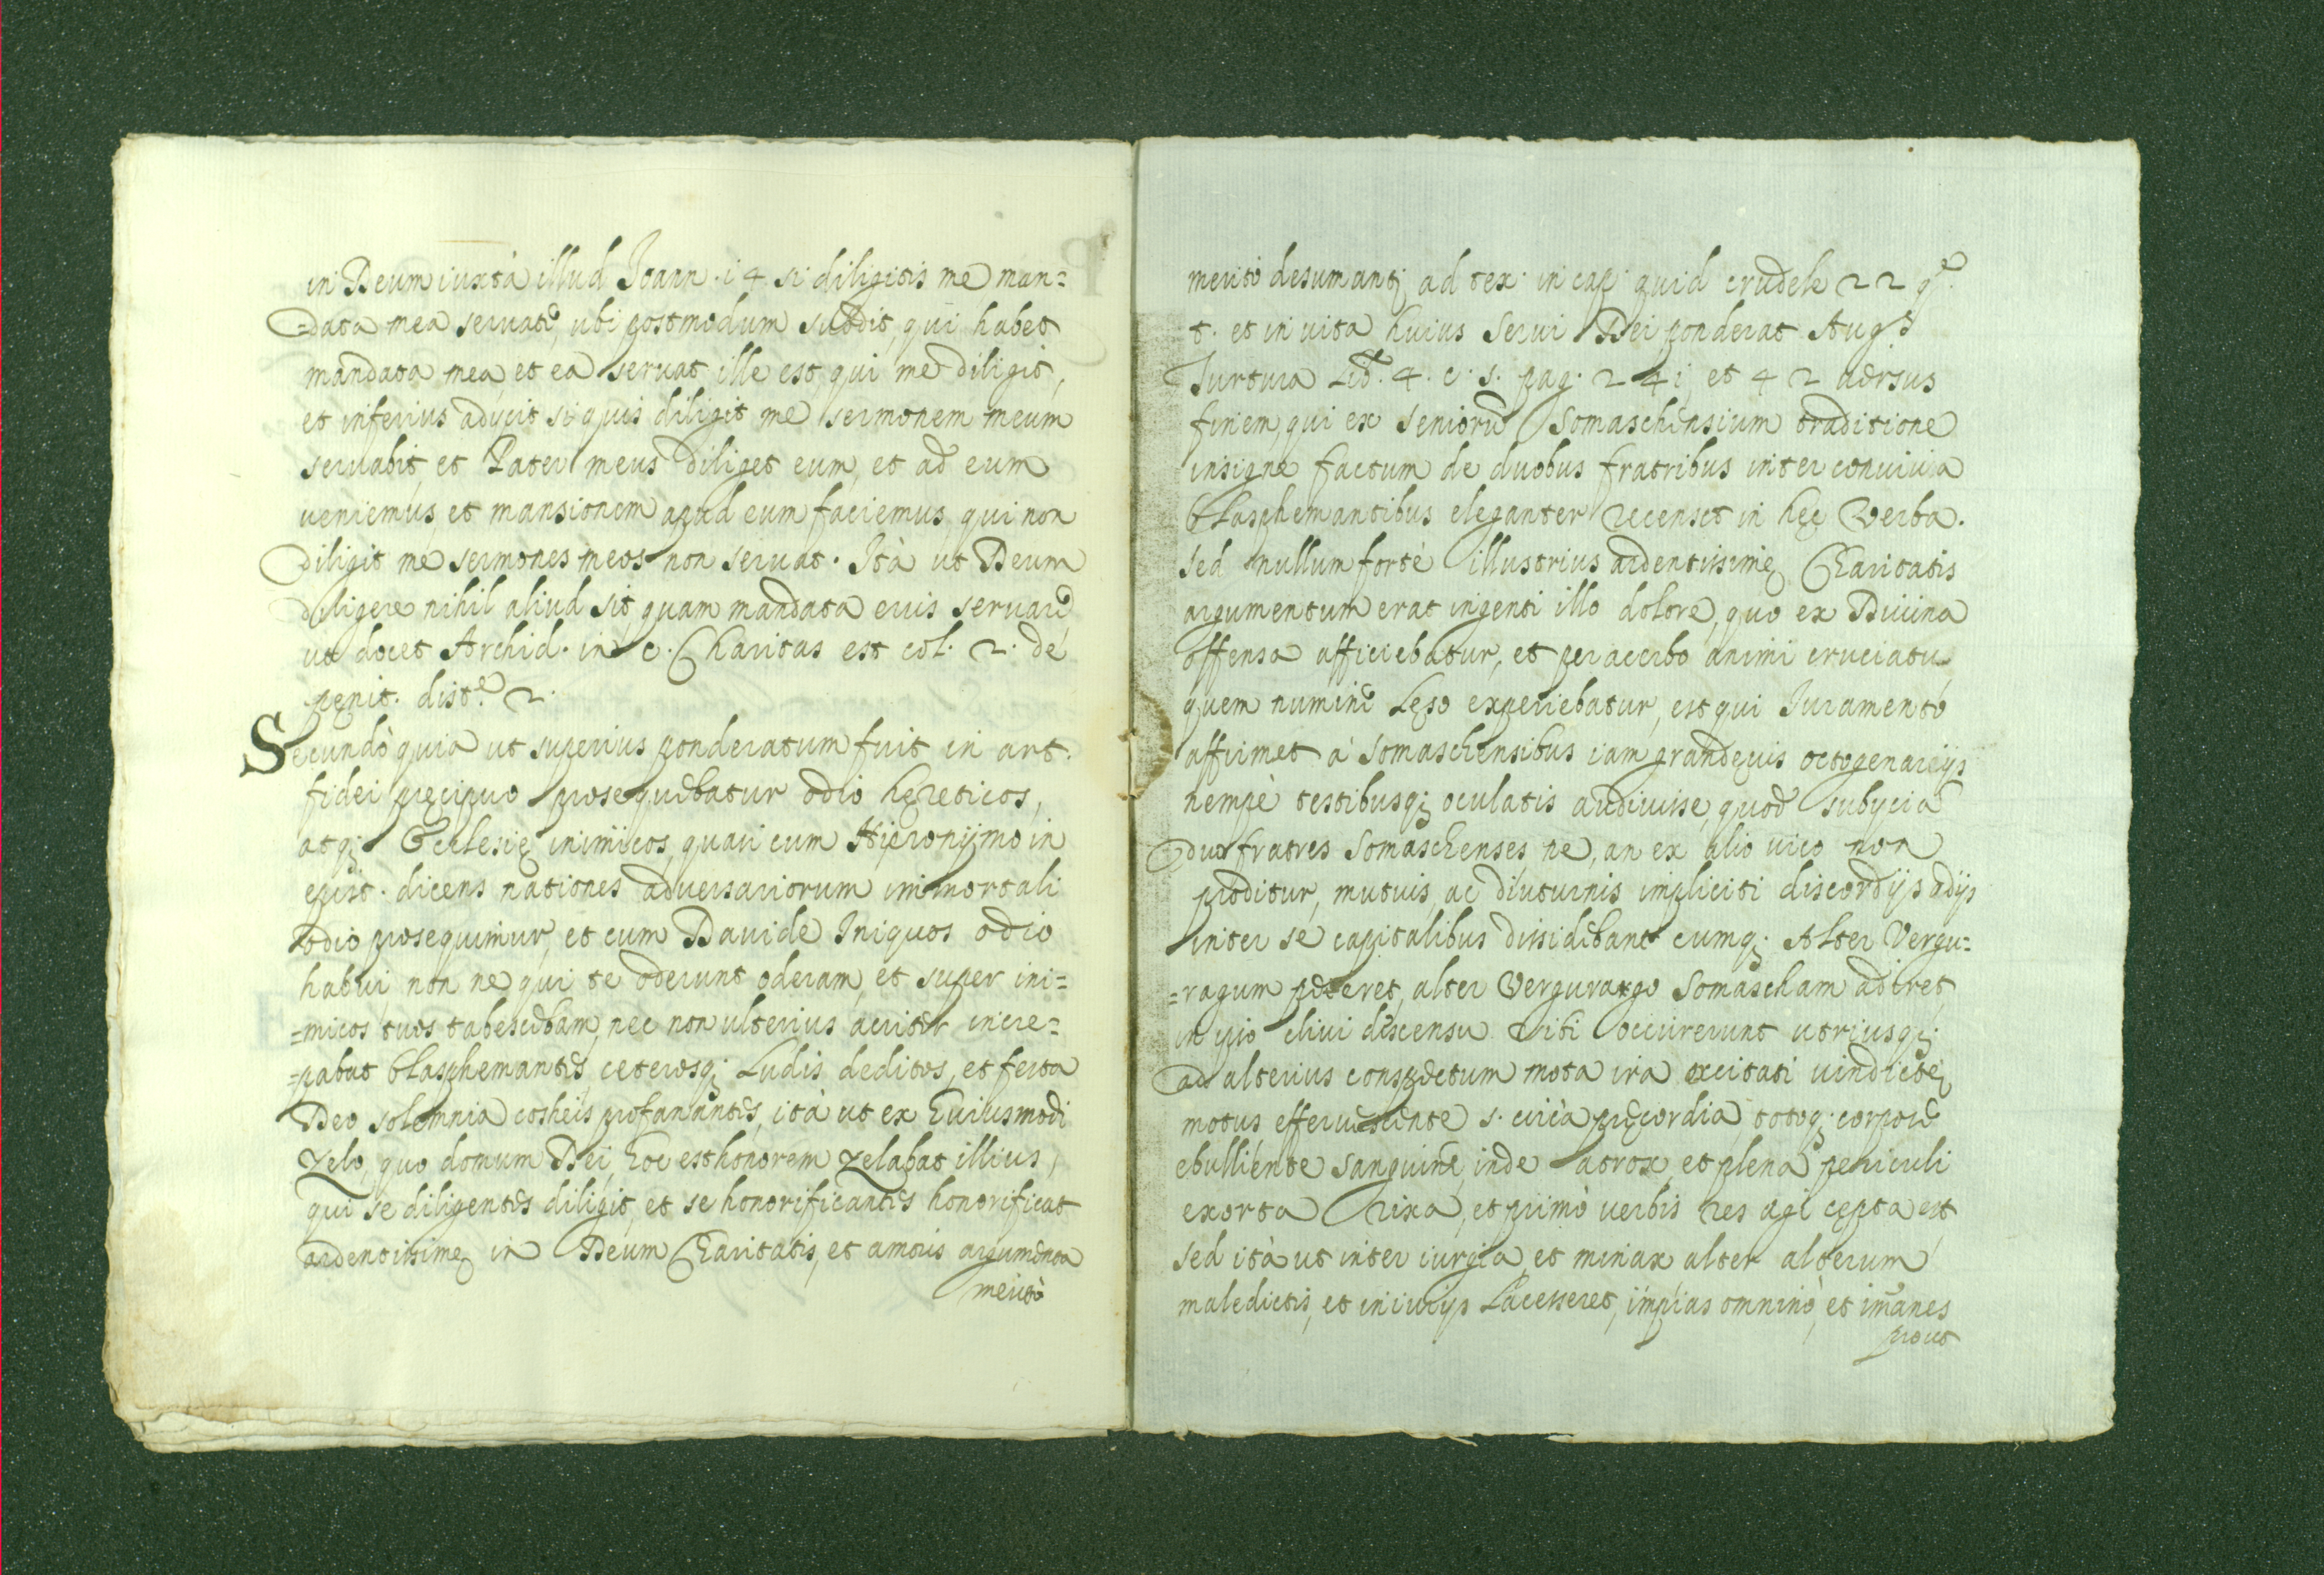 in Deum iuxtà illud Joann. i4. si diligitis me man=
=data mea seruate, ubi postmodum subdit, qui habet
mandata mea et ea seruat ille est, qui me diligit,
et inferius adijcit si quis diligit me sermonem meum
seruabit, et Pater meus diliget eum, et ad eum
ueniemus, et mansionem apud eum faciemus, qui non
diligit me sermones meos non seruat. Ità ut Deum
diligere nihil aliud sit, quam mandata eius seruare
ut docet Archid. in c. Charitas est col. 2. de
pęnit. dist.e 2.
Secundò quia ut superius ponderatum fuit in art.
fidei pręcipuo prosequebatur odio hęreticos,
atq; Ecclesię inimicos, quasi cum Hieronijmo in
epist. dicens nationes aduersariorum immortali
odio prosequimur, et cum Dauide Iniquos odio
habui non ne qui te oderunt oderam, et super ini=
=micos tuos tabescebam, nec non ulterius acriter incre=
=pabat blasphemantes, ceterosq; Ludis deditos, et festa
Deo solemnia profanantes, ità ut ex huiusmodi
zelo, quo domum Dei, hoc est honorem zelabat illius,
qui se diligentes diligit, et se honorificantes honorificat
ardentissimę in Deum Charitatis, et amoris argumenta
meritò
meritò desumant; ad tex. in cap. quid crudele 22 q.
t. et in uita huius Serui Dei ponderat Aug.s
Turtura Lib. 4. c. s. pag. 24i et 42 uersus
finem, qui ex seniorũ Somaschensium traditione
insigne factum de duobus fratribus inter conuiuia
blasphemantibus eleganter recenset in hęc Verba.
sed nullum fortè illustrius ardentissimę Charitatis
argumentum erat ingenti illo dolore, quo ex Diuina
offensa afficiebatur, et peracerbo animi cruciatu
quem numine Lęso experiebatur, est qui Iuramentò
affirmet à Somaschensibus iam grandęuis octogenarijs
nempè testibusq; oculatis audiuisse, quod subijcia
duo fratres Somaschenses ne, an ex alio uico non
proditur, mutuis, ac diuturnis impliciti discordijs adijs
inter se capitalibus dissidebant cumq; Alter Vergu=
=ragum peteret, alter Vergurago Somascham adiret,
in ipso cliui discensu sibi occurrerunt utriusq;
ad alterius conspectum mota ira excitati uindictę
motus efferuescente s. circà pręcordia, totoq; corpore
ebulliente sanguine, inde atrox, et plena periculi
exorta rixa, et primò uerbis res agi cępta est
sed ità ut inter iurgia, et minax alter alterum
maledictis, et iniurijs Lacesseret, impias omninò, et imanes
prout